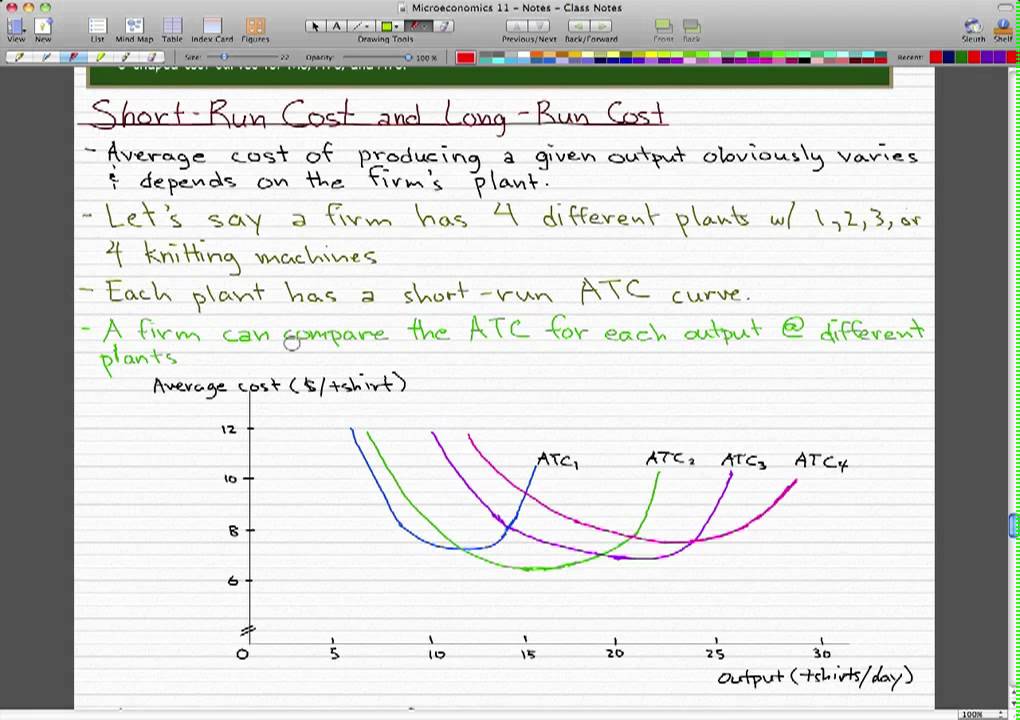 Microeconomics 11 - Notes - Class Notes
View New List Mind Map Table Index Card Figures Drawing Tools Previous/Next Back/Forward Front Back Sleuth Shelf
Size: 22 Opacity: 100 % Recent:
Short-Run Cost and Long-Run Cost
- Average cost of producing a given output obviously varies
& depends on the firm's plant.
- Let's say a firm has 4 different plants w/ 1, 2, 3, or
4 knitting machines
- Each plant has a short-run ATC curve.
- A firm can compare the ATC for each output @ different
plants
Average cost ($/tshirt)
12
ATC1 ATC2 ATC3 ATC4
10
8
6
0 5 10 15 20 25 30
Output (tshirts/day)
100%